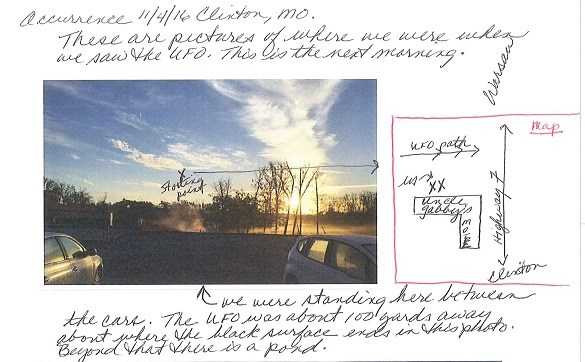 Occurrence 11/4/16 Clinton, MO.
These are pictures of where we were when
we saw the UFO. This is the next morning.
Warsaw
Map
UFO path
us
XX
Uncle
Gabby's
Motel
Highway 7
Clinton
X
Starting
point
we were standing here between
the cars. The UFO was about 100 yards away
about where the black surface ends in this photo.
Beyond that there is a pond.